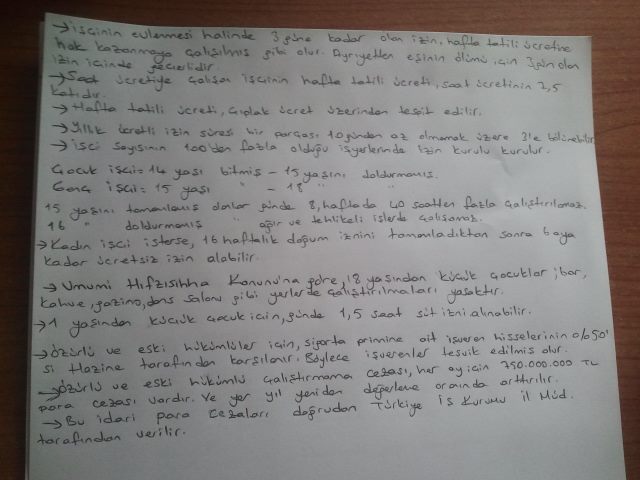 → İşçinin evlenmesi halinde 3 güne kadar olan izin, hafta tatili ücretine
hak kazanmaya çalışılmış gibi olur. Ayriyetten eşinin ölümü için 3 gün olan
izin içinde geçerlidir.
→ Saat ücretiye çalışan işçinin hafta tatili ücreti, saat ücretinin 7,5
katıdır.
→ Hafta tatili ücreti, çıplak ücret üzerinden tespit edilir.
→ Yıllık ücretli izin süresi bir parçası 10 günden az olmamak üzere 3'e bölünebilir.
→ İşci sayısının 100'den fazla olduğu işyerlerinde izin kurulu kurulur.
Çocuk işçi = 14 yaşı bitmiş - 15 yaşını doldurmamış.
Genç işçi = 15 yaşı " - 18 " "
15 yaşını tamamlamış olanlar günde 8, haftada 40 saatten fazla çalıştırılamaz.
16 " doldurmamış " ağır ve tehlikeli işlerde çalışamaz.
→ Kadın işçi isterse, 16 haftalık doğum iznini tamamladıktan sonra 6 aya
kadar ücretsiz izin alabilir.
→ Umumi Hıfzısıhha Kanunu'na göre, 18 yaşından küçük çocuklar ; bar,
kahve, gazino, dans salonu gibi yerlerde çalıştırılmaları yasaktır.
→ 1 yaşından küçük çocuk için, günde 1,5 saat süt izni alınabilir.
→ Özürlü ve eski hükümlüler için, sigorta primine ait işveren hisselerinin %50'
si Hazine tarafından karşılanır. Böylece işverenler teşvik edilmiş olur.
→ Özürlü ve eski hükümlü çalıştırmama cezası, her ay için 750.000.000 TL
para cezası vardır. Ve yer yıl yeniden değerleme oranında arttırılır.
→ Bu idari para cezaları doğrudan Türkiye İş Kurumu İl Müd.
tarafından verilir.